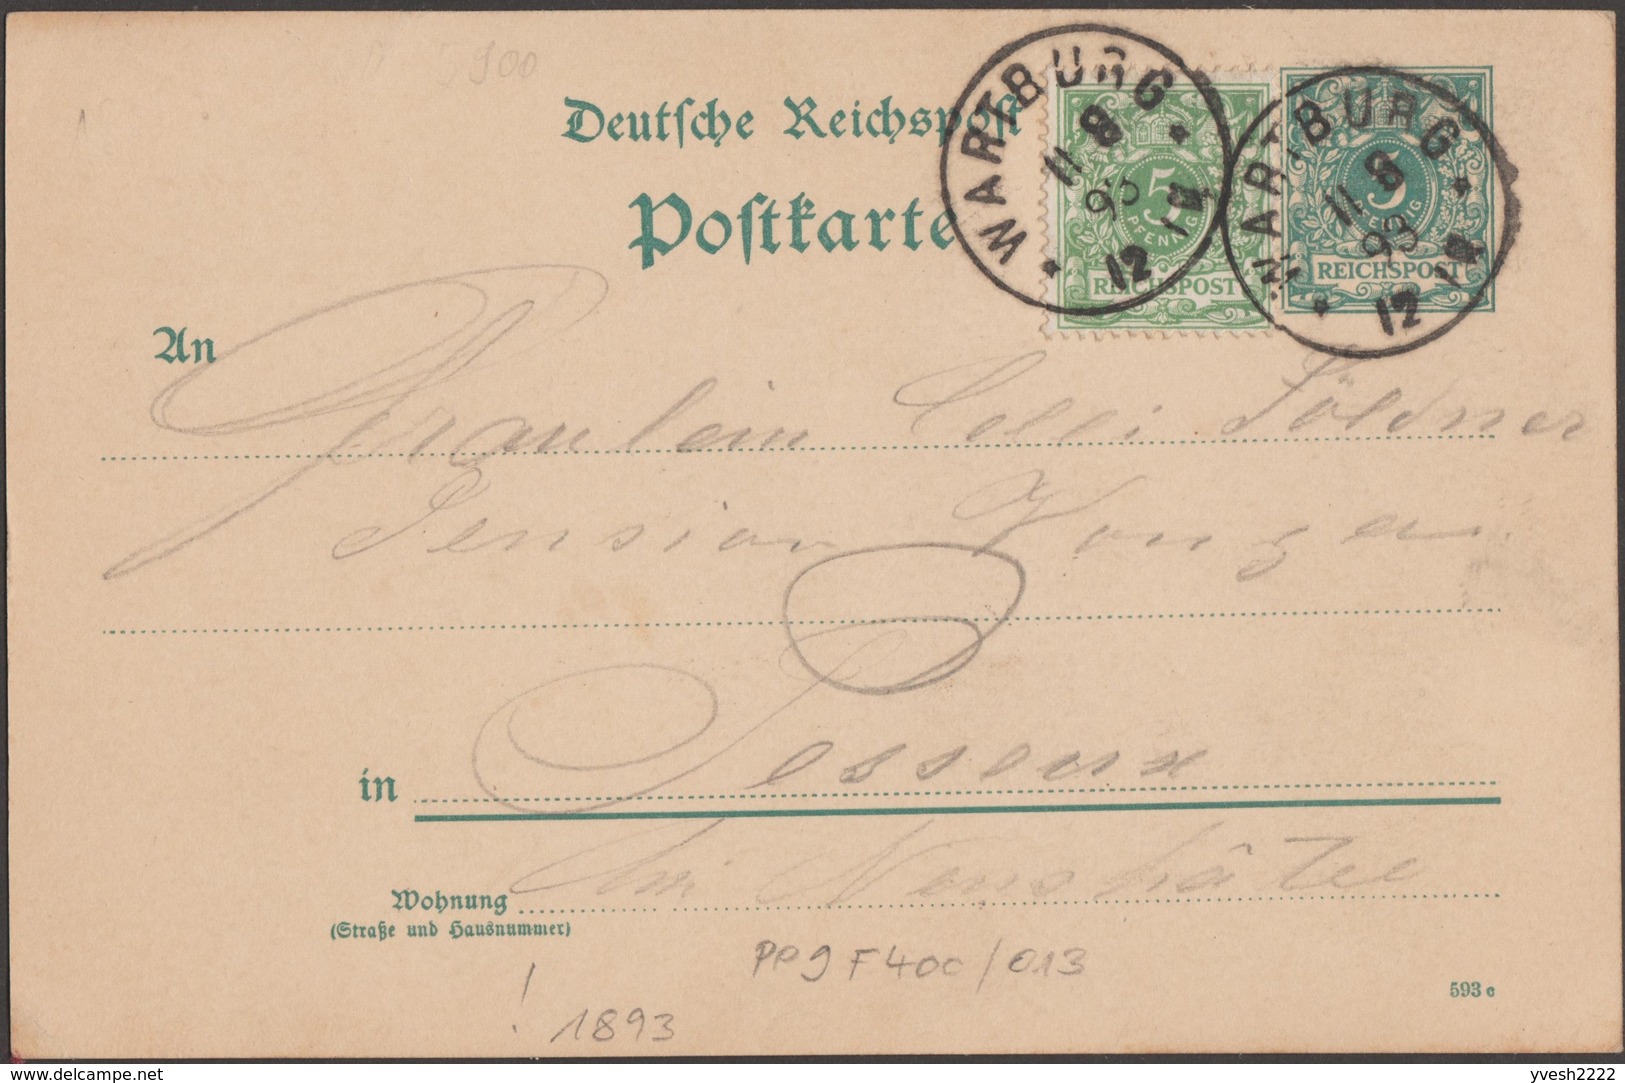 900
Deutsche Reichspost
Postkarte
WARTBURG
11 8
93
12 1N
5
PFENNIG
REICHSPOST
WARTBURG
11 8
93
12 1N
5
PFENNIG
REICHSPOST
An
Fräulein Söldner
Pension
in Peseux
Neuchâtel
Wohnung
(Straße und Hausnummer)
PP9 F400/013
593 e
! 1893
delcampe.net
yvesh2222